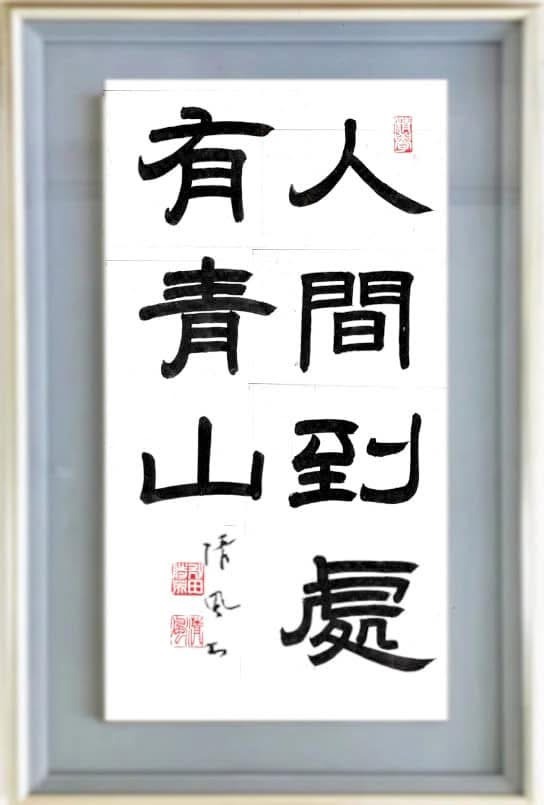 人間到處
有青山
清風書